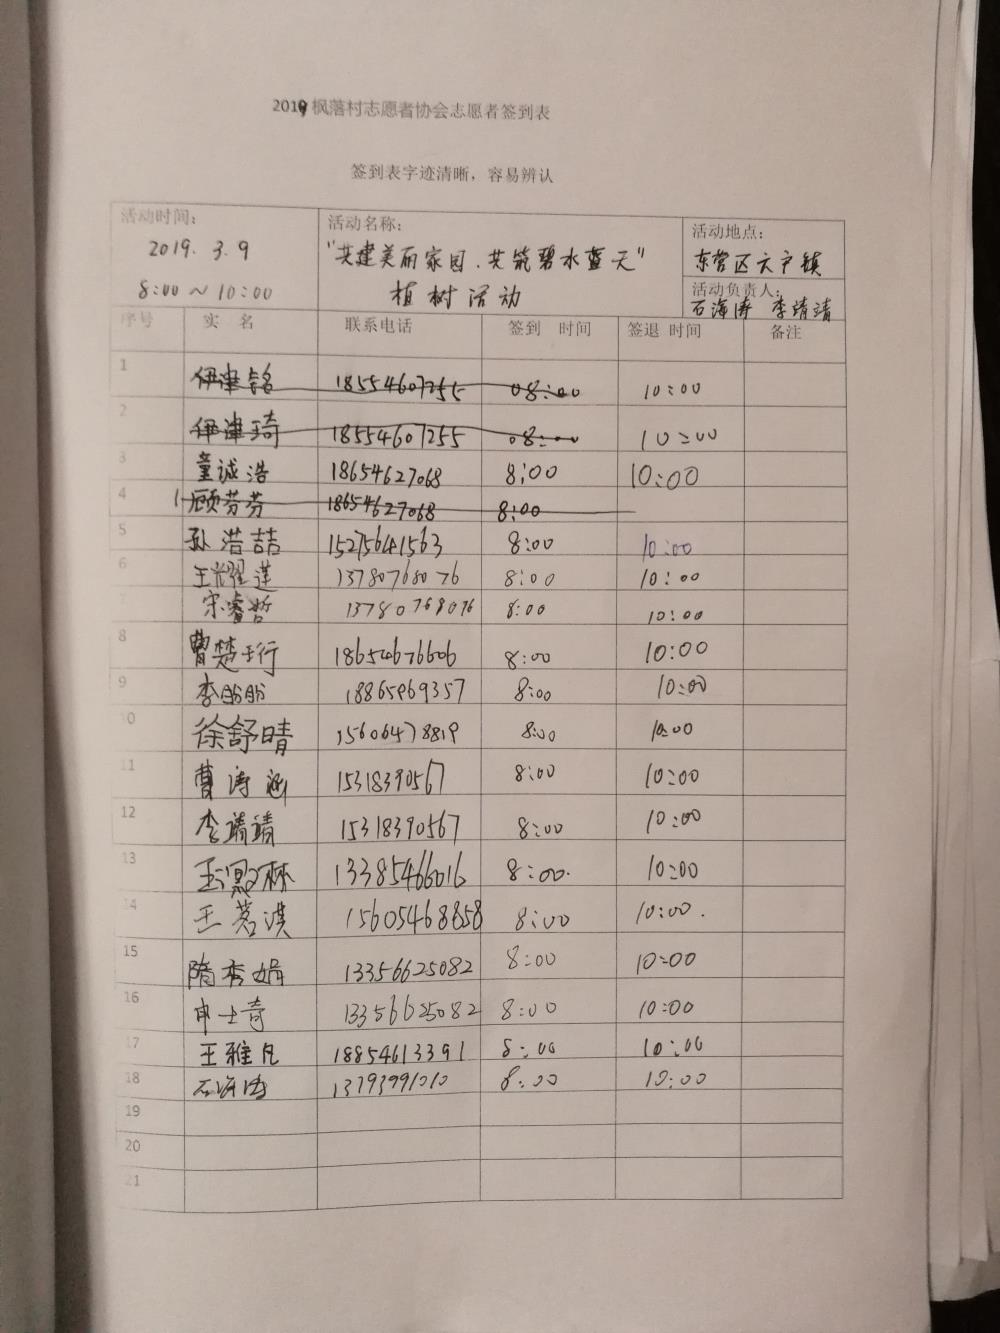 2019枫落村志愿者协会志愿者签到表
签到表字迹清晰，容易辨认
活动时间： 活动名称： 活动地点：
2019.3.9 "共建美丽家园、共筑碧水蓝天" 东营区六户镇
8:00～10:00 植树活动 活动负责人：
石海涛 李靖靖
序号 实 名 联系电话 签到 时间 签退 时间 备注
1 伊津铭 18554607255 08:00 10:00
2 伊津琦 18554607255 08:00 10:00
3 童诚浩 18654627068 8:00 10:00
4 顾芬芬 18654627068 8:00
5 孙浩喆 15275641563 8:00 10:00
6 王耀莲 13780768076 8:00 10:00
7 宋睿哲 13780768076 8:00 10:00
8 曹楚珩 18654676606 8:00 10:00
9 李盼盼 18865969357 8:00 10:00
10 徐舒晴 15606478819 8:00 10:00
11 曹涛涵 15318390567 8:00 10:00
12 李靖靖 15318390567 8:00 10:00
13 13385466016 8:00. 10:00
14 王茗淇 15605468858 8:00 10:00.
15 隋秀娟 13356625082 8:00 10:00
16 申士奇 13356625082 8:00 10:00
17 王雅凡 18854613391 8:00 10:00
18 石海涛 13793991010 8:00 10:00
19
20
21